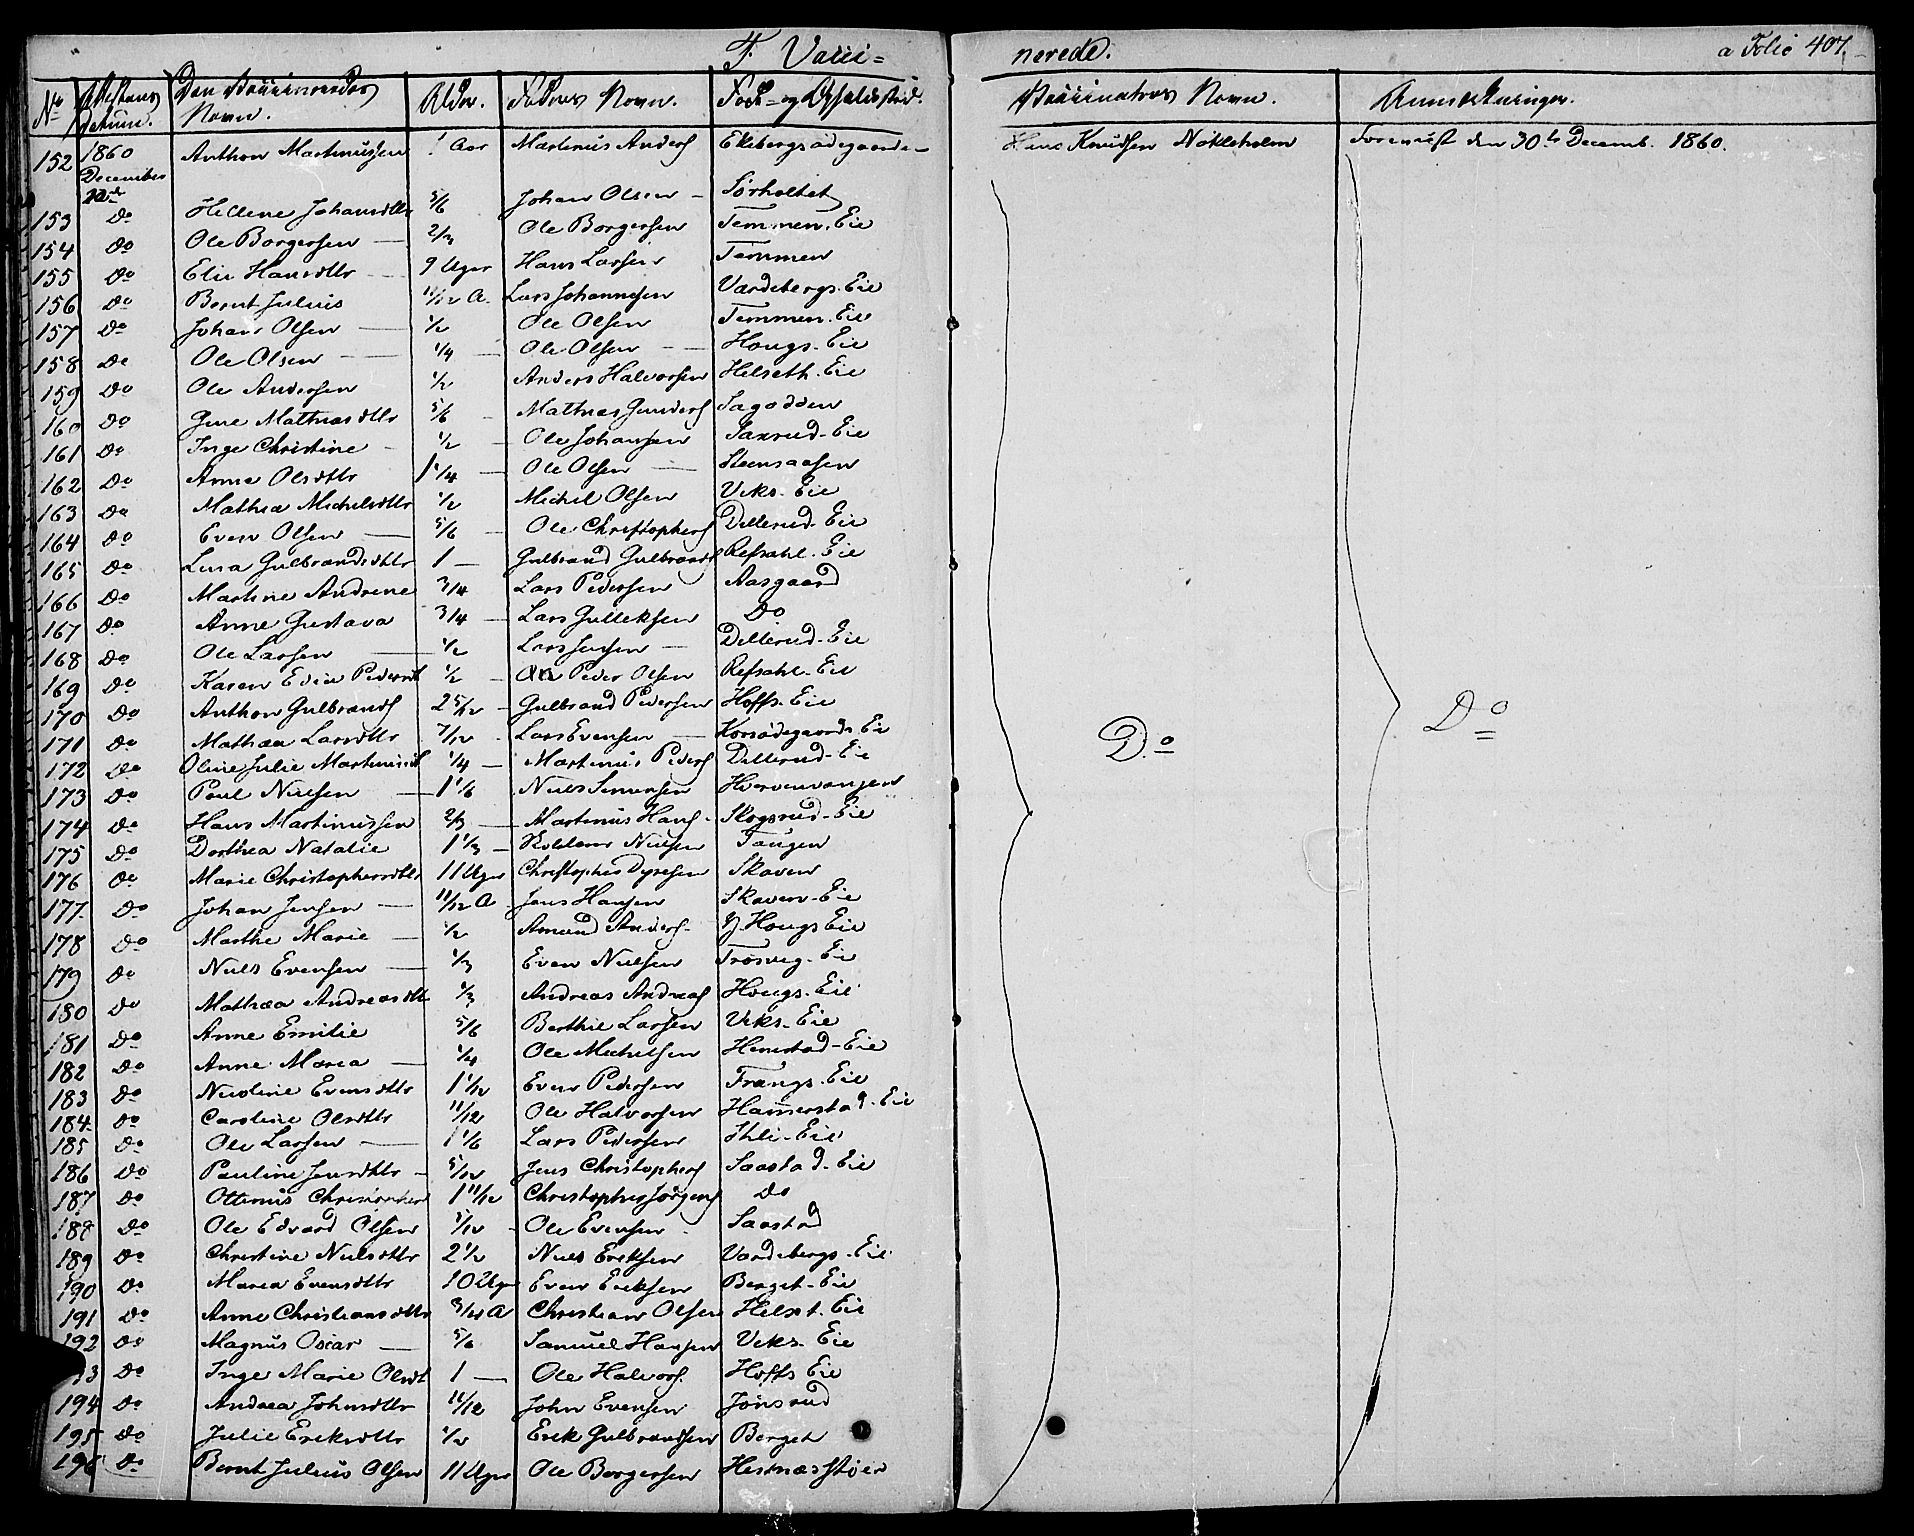 F. Vacci=
nerede.
a Folio 407.
No Attestens datum. Den Vaccineredes Navn. Alder. Fadrens Navn. Føde- og Opholdssted. Vaccinators Navn. Anmærkninger.
152 1860 December 22de Anthon Martinussen 1 Aar Martinus Anders Ekebergsødegaarde Hans Knudsen Nøkleholm Foreviist den 30te Decemb. 1860.
153 Do Hellene Johansdtr 5/6 Johan Olsen Sørholtet
154 Do Ole Borgersen 2/3 Ole Borgersen Temmen. Eie
155 Do Elie Hansdtr 9 Uger Hans Larsen Temmen
156 Do Bernt Julius 11/12 A. Lars Johannesen Vardebergs. Eie
157 Do Johan Olsen 1/2 Ole Olsen Temmen. Eie
158 Do Ole Olsen 1/4 Ole Olsen Hougs. Eie
159 Do Ole Andersen 1/2 Anders Halvorsen Helseth. Eie
160 Do Gine Mathiasdtr 5/6 Mathias Gunders Sagodden
161 Do Inge Christine 1/2 Ole Johansen Saxrud. Eie
162 Do Anne Olsdtr 1 1/4 Ole Olsen Steensaasen
163 Do Mathea Michelsdtr 1/2 Michel Olsen Veks. Eie
164 Do Even Olsen 5/6 Ole Christophers Dellerud. Eie
165 Do Lina Gulbrandsdtr 1 Gulbrand Gulbrands Refsahl. Eie
166 Do Martine Andrine 3/4 Lars Pedersen Aasgaard
167 Do Anne Gustava 3/4 Lars Gulleksen Do
168 Do Ole Larsen 1/2 Lars Jensen Dellerud. Eie
169 Do Karen Edie Pedersdt 1/2 Peder Olsen Refsahl. Eie
170 Do Anthon Gulbrands 2 5/12 Gulbrand Pedersen Hoffs. Eie
171 Do Mathea Larsdtr 7/12 Lars Evensen Korsødegaards Eie
172 Do Oline Julie Martinusdt 1/4 Martinus Peders Dellerud. Eie
173 Do Poul Nielsen 1 1/6 Niels Simensen Hvervenvangen
174 Do Hans Martinussen 2/3 Martinus Hans Skogsrud. Eie
175 Do Dorthea Natalie 1 1/3 Nielsen Tangen
176 Do Marie Christophersdtr 11 Uger Christopher Dyresen Skaven
177 Do Johan Jensen 11/12 A Jens Hansen Skaven. Eie
178 Do Marthe Marie 1/2 Amund Anders Hougs Eie
179 Do Niels Evensen 1/3 Even Nielsen Trosvig. Eie
180 Do Mathea Andreasdtr 1/3 Andreas Andreas Hougs. Eie
181 Do Anne Emilie 5/6 Berthie Larsen Veks. Eie
182 Do Anne Maria 1/4 Ole Michelsen Hemstad. Eie
183 Do Nicoline Evensdtr 1 1/12 Even Pedersen Frangs. Eie
184. Do Caroline Olsdtr 11/12 Ole Halvorsen Hammerstad. Eie
185 Do Ole Larsen 1 1/6 Lars Pedersen Ihli. Eie
186 Do Pauline Jensdtr 5/12 Jens Christophers Saastad. Eie
187 Do Ottinius Christophers 1 11/12 Christopher Jørgens Do
188 Do Ole Edvard Olsen 5/12 Ole Evensen Saastad
189 Do Christine Nielsdtr 2 1/2 Niels Eriksen Vardebergs. Eie
190 Do Maria Evensdtr 10 Uger Even Eriksen Berget. Eie
191 Do Anne Christiansdtr 3/4 A Christian Olsen Helset. Eie
192 Do Magnus Oscar 5/6 Samuel Hansen Veks. Eie
3 Do Inge Marie Olsdt 1 Ole Halvors. Hoffs Eie
194 Do Andrea Johnsdtr 11/12 John Evensen Jønsrud
195 Do Julie Eriksdtr 1/2 Erik Gulbrandsen Berget
196 Do Bernt Julius Olsen 11 Uger Ole Borgersen Hesnæsstøen
Do
Do